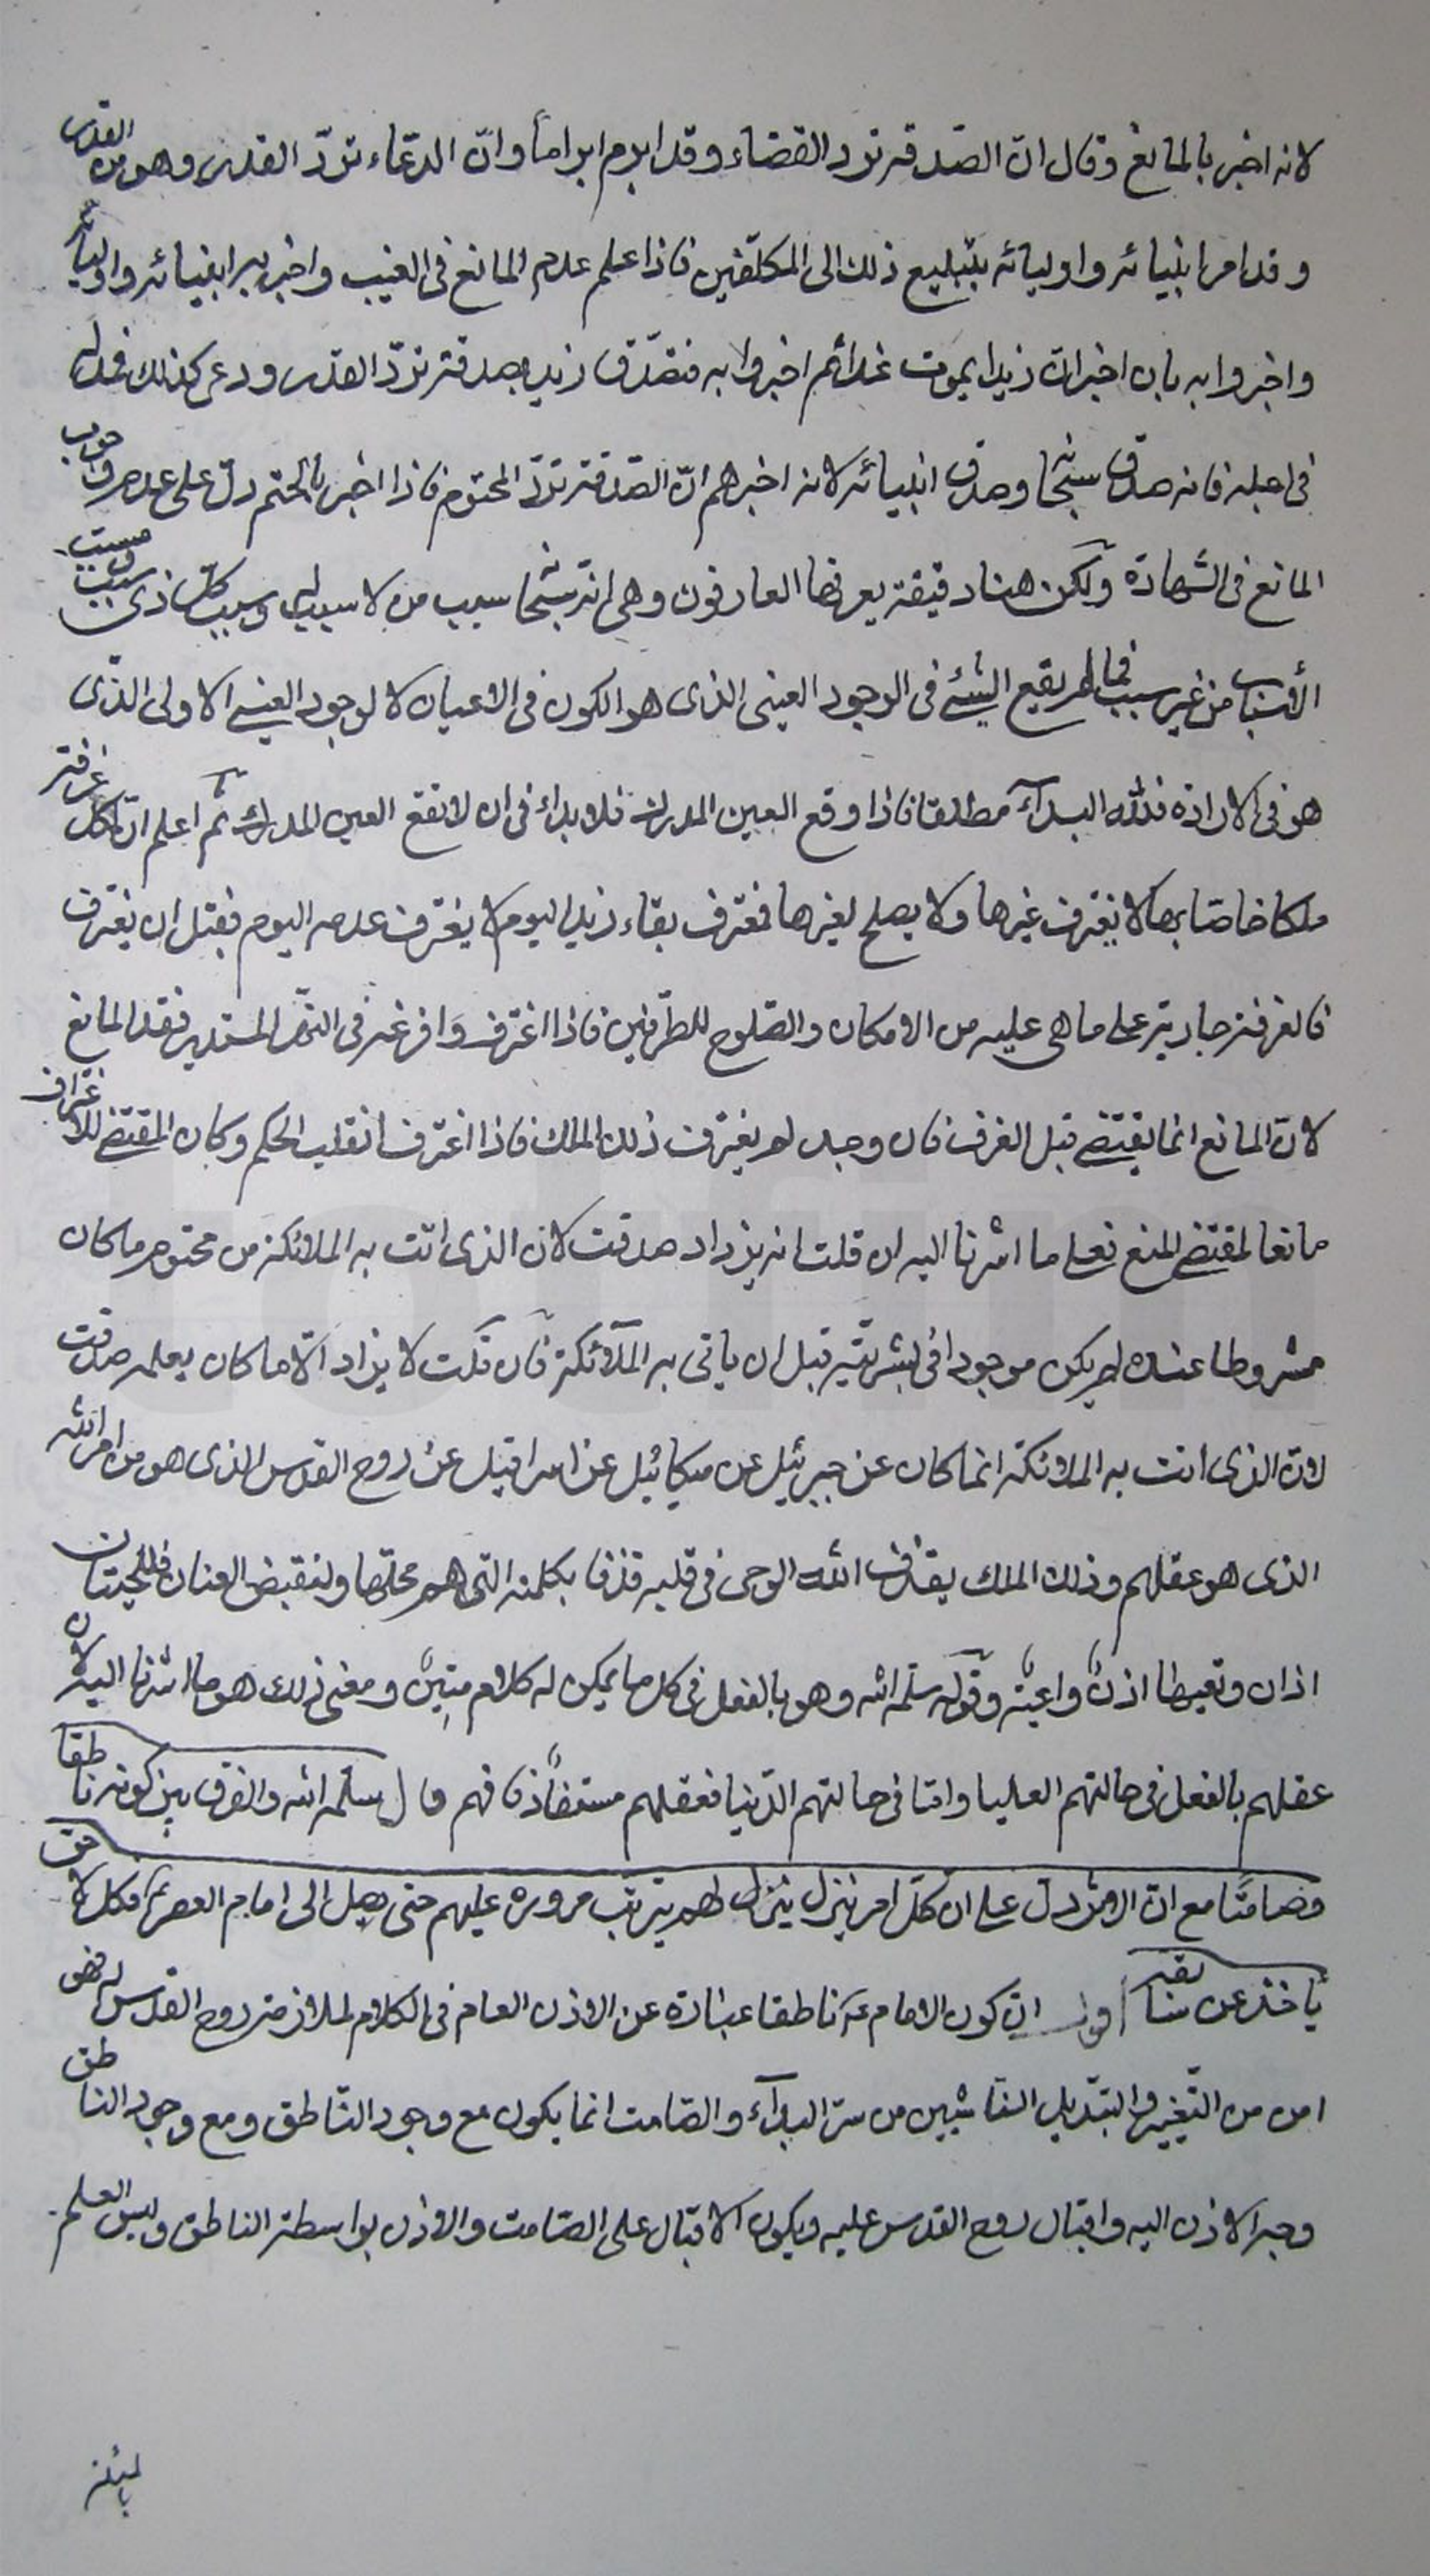 لانه اخبر بالمانع وقال ان الصّدقة ترد القضاء وقد ابرم ابراماً وانّ الدعّاء تردّ القدر وهو من القدر
و قد امر انبيائه واوليائه بتبليع ذلك الى المكلّفين فاذا علم عدم المانع فى الغيب واخبر به انبيائه واوليائه
واخبروا به بان اخبر انّ زيدا يموت غدا ثم اخبروا به فتصّدّق زيد بصدقة تردّ القدر ودعى كذلك فمد له
فى اجله فانه صدق سبحا وصدق انبيائه لانه اخبرهم انّ الصّدقة تردّ المحتوم فاذا اخبر بالحتم دلّ على عدم وجوب
المانع فى الشهادة ولكن هنا دقيقة يعرفها العارفون وهى انّه سبحا سبب من لا سبب له وسبب كلّ ذى سبب ومسبب
الأسباب من غير سبب فما لم يقع الشئ فى الوجود العينى الذى هو الكون فى الاعيان لا لوجود العينى الاولى الذّى
هو فى الارادة فللّه البدآء مطلقا فاذا وقع العين المدرك فلا بداء فى ان لا تقع العين المدرك ثم اعلم انّ لكل غرفة
ملكا خاصّا بها لا يغترف غيرها ولا يصلح لغيرها فمغترف بقاء زيد اليوم لا يغترف عدمه اليوم فقبل ان يغترف
فالغرفة جارية على ما هى عليه من الامكان والصّلوح للطّرفين فاذا اغترف وَافرغه فى النهّر المستدير فقد المانع
لانّ المانع انما يقتضى قبل الغرف فان وجد لم يغترف ذلك الملك فاذا اغترف انقلب الحكم وكان المقتضى للاغتراف
مانعا لمقتضى المنع فعلى ما اشرنا اليه ان قلت انه يزداد صدقت لان الذى اتت به الملائكة من محتوم ما كان
مشروطا عنده لم يكن موجودا فى بشريّته قبل ان ياتى به الملآئكة فان قلت لا يزاد الّا ما كان يعلمه صدقت
لانّ الذى اتت به الملائكة انما كان عن جبرئيل عن ميكائيل عن اسرافيل عن روح القدس الذى هو من امر اللّه
الذى هو عقلهم وذلك الملك يقذف اللّه الوحى فى قلبه قذفا بكلمته التى هم محلّها ولنقبض العنان فللحيتان
اذان وتعيها اذنٌ واعيةٌ وقوله سلّمه اللّه وهو بالفعل فى كل ما يمكن له كلام متينٌ ومعنى ذلك هو ما اشرنا اليه لان
عقلهم بالفعل فى حالتهم العليا وامّا فى حالتهم الدّنيا فعقلهم مستفادٌ فافهم قال سلّمه اللّه والفرق بين كونه ناطقا
وصامتًا مع ان دلّ على ان كلّ امر ينزل ينزل لهم يترتّب مروره عليهم حتى يصل الى امام العصر فكل لاحق
ياخذ عن سابقه اقول انّ كون الامام ناطقا عبارة عن الاذن العام فى الكلام لملازمة روح القدس له فهو
امن من التّغيير والتبّديل الناشيين من سرّ البدآء والصّامت انما يكون مع وجود النّاطق ومع وجود الناطق
وجه الاذن اليه واقبال روح القدس عليه ويكون الاقبال على الصّامت والاذن بواسطة الناطق وليس العلم